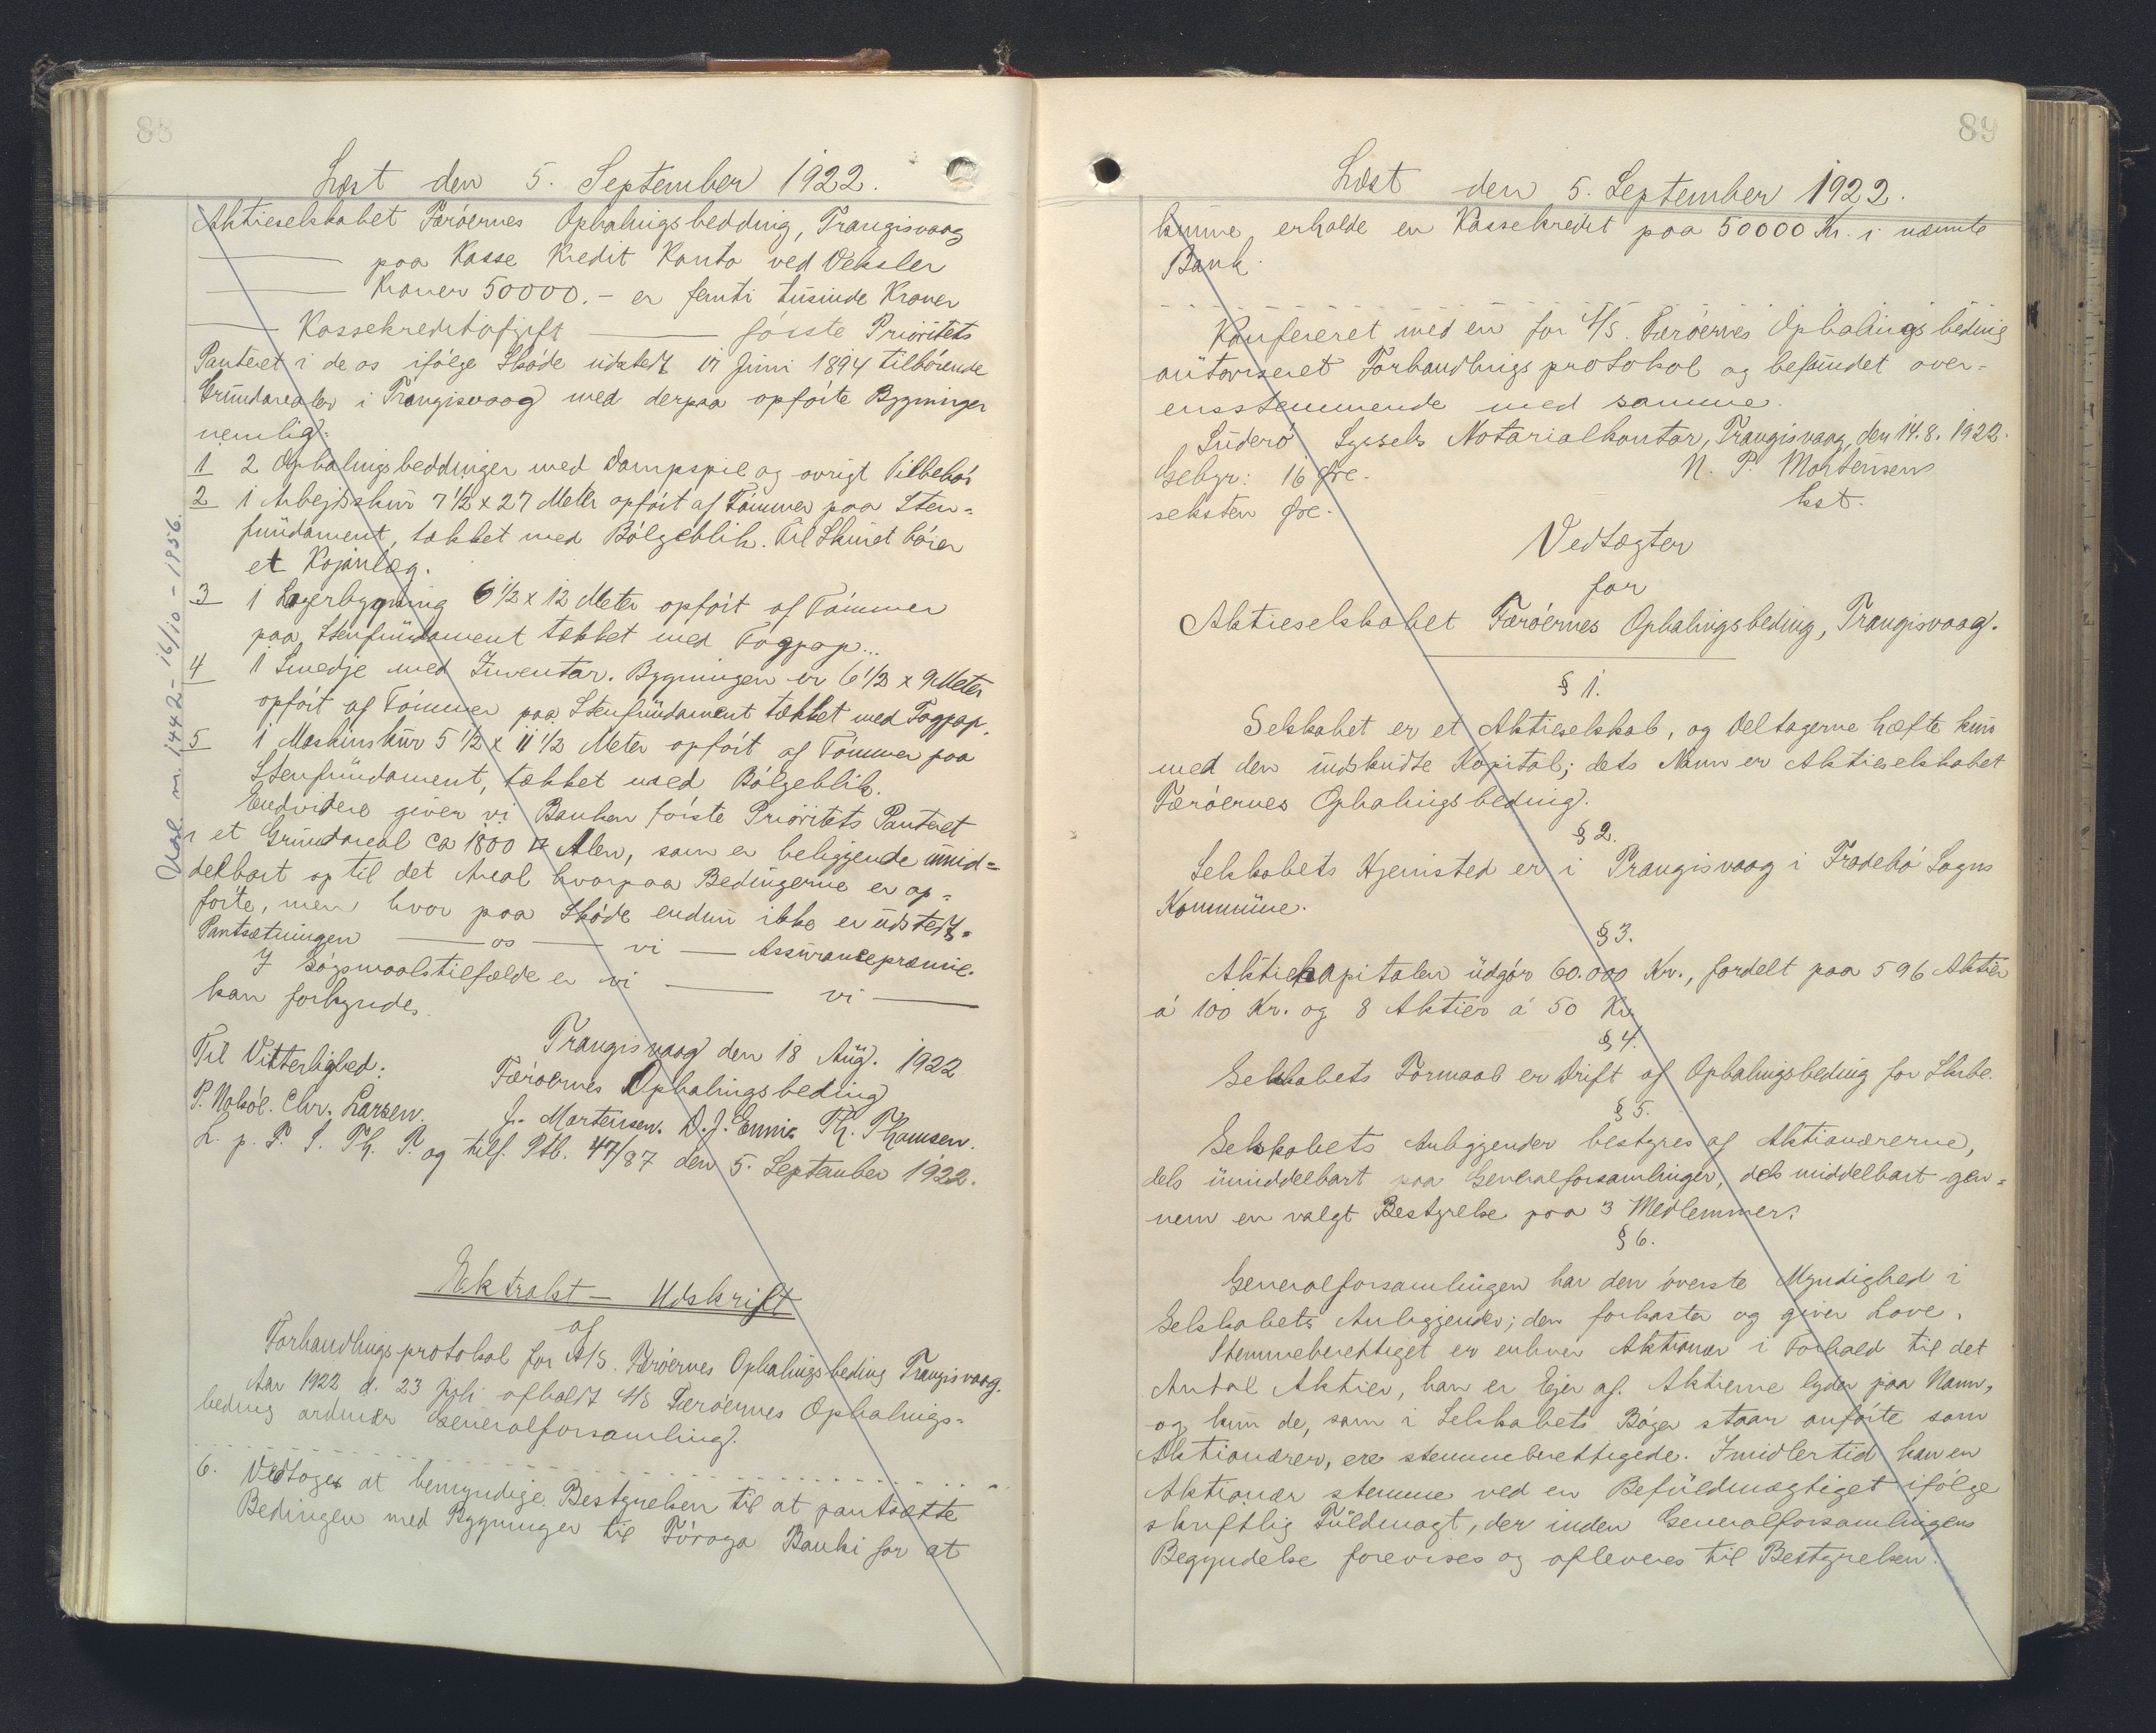 88
Læst den 5. September 1922.
Aktieselskabet Færöernes Ophalingsbedding, Trangisvaag
paa Kasse Kredit Konto ved Veksler
Kroner 50000.- er femti tusinde Kroner
Kassekreditafgift förste Prioritets
Panteret i de os ifölge Sköde udstedt 17 Juni 1894 tilhörende
Grundarealer i Trangisvaag med derpaa opförte Bygninger
nemlig:
1 2 Ophalingsbeddinger med Dampspil og övrigt Tilbehör
2 1 Arbejdsskur 7 1/2 x 27 Meter opfört af Tömmer paa Sten=
fundament, tækket med Bölgeblik. Til Skuret hörer
et Kojanlæg.
3 1 Lagerbygning 6 1/2 x 12 Meter opfört af Tömmer
paa Stenfundament tækket med Tagpap...
4 1 Smedje med Inventar. Bygningen er 6 1/2 x 9 Meter
opfört af Tömmer paa Stenfundament tækket med Tagpap.
5 1 Maskinskur 5 1/2 x 11 1/2 Meter opfört af Tömmer paa
Stenfundament, tækket med Bölgeblik.
Endvidere giver vi Banken förste Prioritets Panteret
i et Grundareal ca 1800 □ Alen, som er beliggende umid=
delbart op til det Areal hvorpaa Bedingerne er op=
förte, men hvor paa Sköde endnu ikke er udstedt.
Pantsætningen os vi Assurancepræmie.
I Sögsmaalstilfælde er vi vi
kan forkyndes.
Trangisvaag den 18 Aug. 1922
Til Vitterlighed: Færoernes Ophalingsbeding
P. Nolsöe. Chr. Larsen. J. Mortensen. D. J. Ennis Th. Thomsen.
L. p. P. S. Th. P. og tilf. Ptb. 47/87 den 5. September 1922.
Aral nr. 1442 - 16/10 - 1956.
Ektrakt - Udskrift
af
Forhandlingsprotokol for A/S. Færöernes Ophalingsbeding Trangisvaag.
Aar 1922 d. 23 Juli afholdt A/S Færöernes Ophalings=
beding ordinær Generalforsamling.
6. Vedtoges at bemyndige Bestyrelsen til at pantsætte
Bedingen med Bygninger til Föroya Banki for at
89
Læst den 5. September 1922.
kunne erholde en Kassekredit paa 50000 Kr. i nævnte
Bank.
Konfereret med en for A/S. Færöernes Ophalingsbeding
autoriseret Forhandlingsprotokol og befundet over=
ensstemmende med samme.
Suderö Syssels Notarialkontor, Trangisvaag, den 14.8.1922.
Gebyr: 16 Øre. N. P. Mortensen
seksten Øre. kst.
Vedtægter
for
Aktieselskabet Færöernes Ophalingsbeding, Trangisvaag.
§ 1.
Selskabet er et Aktieselskab, og Deltagerne hæfte kun
med den indskudte Kapital; dets Navn er Aktieselskabet
Færöernes Ophalingsbeding.
§ 2.
Selskabets Hjemsted er i Trangisvaag i Frodebö Sogns
Kommune.
§ 3.
Aktiekapitalen udgör 60.000 Kr., fordelt paa 596 Aktier
á 100 Kr. og 8 Aktier á 50 Kr.
§ 4.
Selskabets Formaal er Drift af Ophalingsbeding for Skibe.
§ 5.
Selskabets Anliggender bestyres af Aktionærerne,
dels umiddelbart paa Generalforsamlinger, dels middelbart gen=
nem en valgt Bestyrelse paa 3 Medlemmer.
§ 6.
Generalforsamlingen har den överste Myndighed i
Selskabets Anliggender; den forkaster og giver Love.
Stemmeberettiget er enhver Aktionær i Forhold til det
Antal Aktier, han er Ejer af. Aktierne lyder paa Navn,
og kun de, som i Selskabets Böger staar anförte som
Aktionærer, ere stemmeberettigede. Imidlertid kan en
Aktionær stemme ved en Befuldmægtiget ifölge
skriftlig Fuldmagt, der inden Generalforsamlingens
Begyndelse forevises og afleveres til Bestyrelsen.